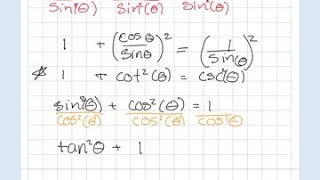 sin²(θ) sin²(θ) sin²(θ)
1 + (cosθ/sinθ)² = (1/sin(θ))²
* 1 + cot²(θ) = csc²(θ)
sin²(θ)/cos²(θ) + cos²(θ)/cos²(θ) = 1/cos²θ
tan²θ + 1